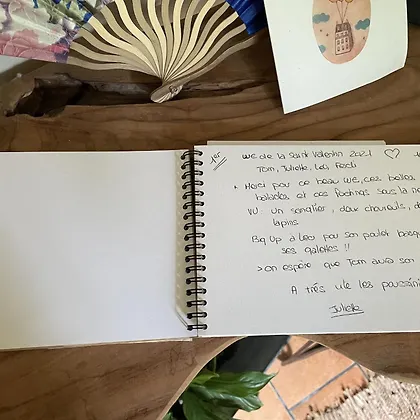 1er
WE de la Saint Valentin 2021 ♡
Tom, Juliette, Léa, Ferdi
• Merci pour ce beau WE, ces belles
balades et ces sous la
VU : un sanglier, deux chevreuils, d
lapins
Big Up à Léa pour son poulet basq
ses galettes !!
> on espère que Tom aura son
A très vite les poussins
Juliette